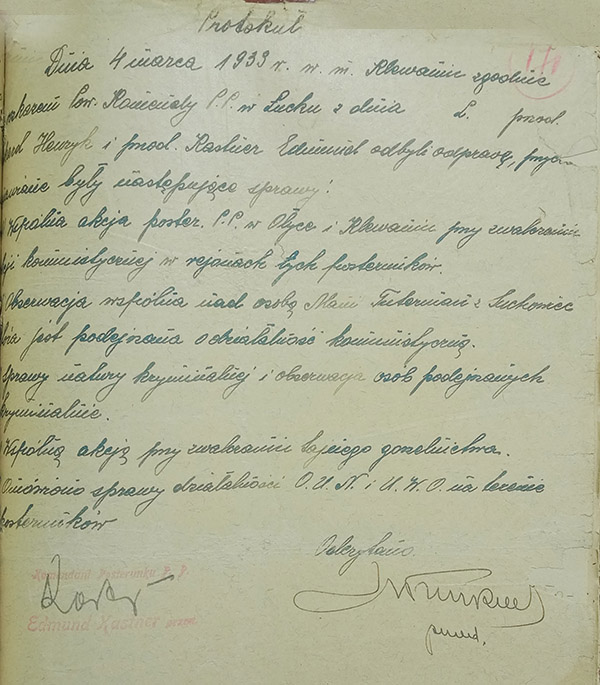 Protokół
Dnia 4 marca 1933 r. w m. Klewaniu zgodnie
Pow. Komendy P.P. w Łucku z dnia L. przod.
Henryk i przod. Kastner Edmund odbyli odprawę, przy
były następujące sprawy:
Wspólna akcja poster. P.P. w Ołyce i Klewaniu przy zwalczaniu
komunistycznej w rejonach tych posterunków.
Obserwacja wspólna nad osobą Mani z
jest podejrzana o działalność komunistyczną.
Sprawy natury kryminalnej i obserwacja osób podejrzanych
kryminalnie.
Wspólną akcją przy zwalczaniu tajnego gorzelnictwa.
Omówiono sprawy działalności O.U.N. i U.W.O. na terenie
posterunków
Odczytano
Komendant Posterunku P. P.
Edmund Kastner przod.
przod.